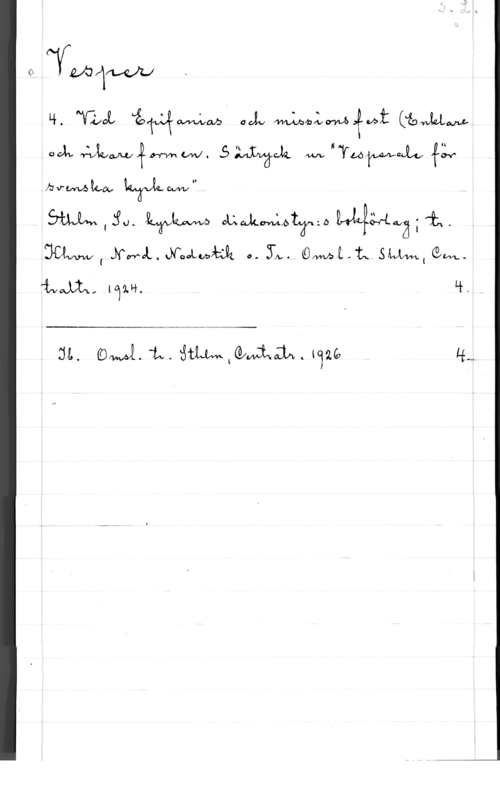 S. 2.
Vesper
4. Vid Epifanias och missionsfest (Enklare
och rikare formen. Särtryck ur "Vesperale för
svenska kyrkan"
Sthlm, Sv. kyrkans diakonistyr:s bokförlag; tr.
Khvn, Nord. Nodestik o. Tr. Omsl. tr. Sthlm, Cen-
traltr. 1924. 4
Ib. Omsl. tr. Sthlm, Centraltr. 1926 4